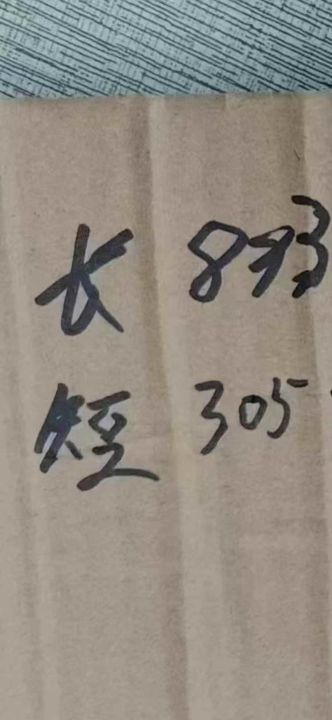 长 893
短 305